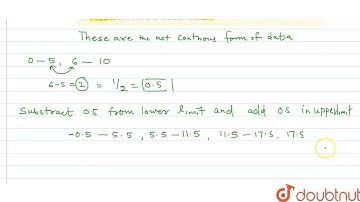 These are the not contnous form of data
0 – 5, 6 – 10
6-5 = 1 = 1/2 = 0.5
Substract 0.5 from lower limit and add 0.5 in upperlimit
-0.5 – 5.5, 5.5 – 11.5, 11.5 – 17.5, 17.5
doubtnut